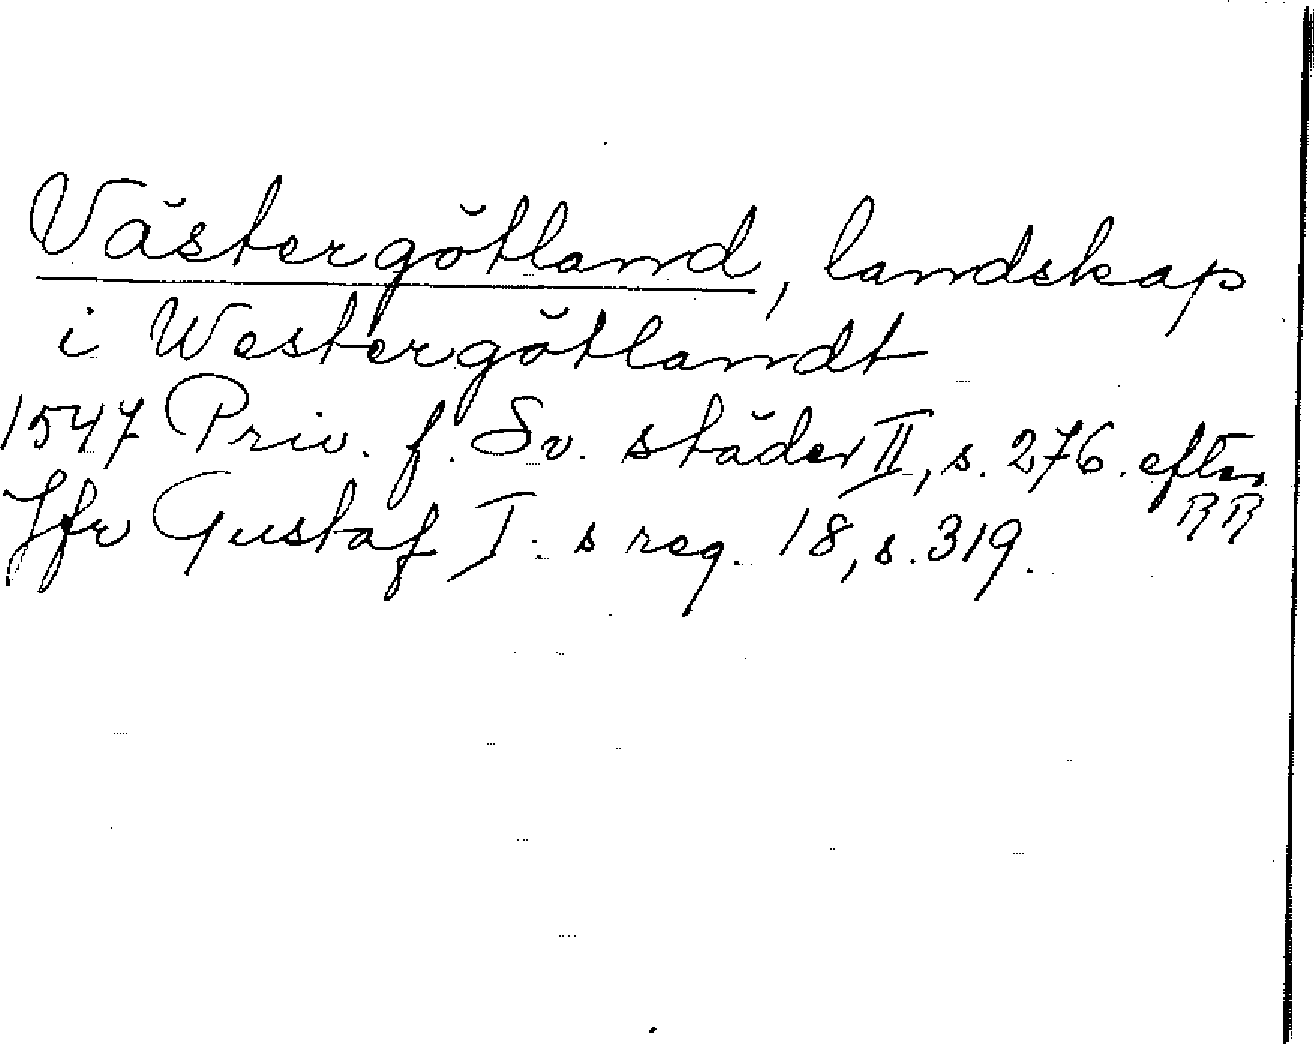 Västergötland, landskap
i Westergötlandt
1547 Priv. f. Sv. städer II, s. 276. efter
RR
Jfr Gustaf I:s reg. 18, s. 319.